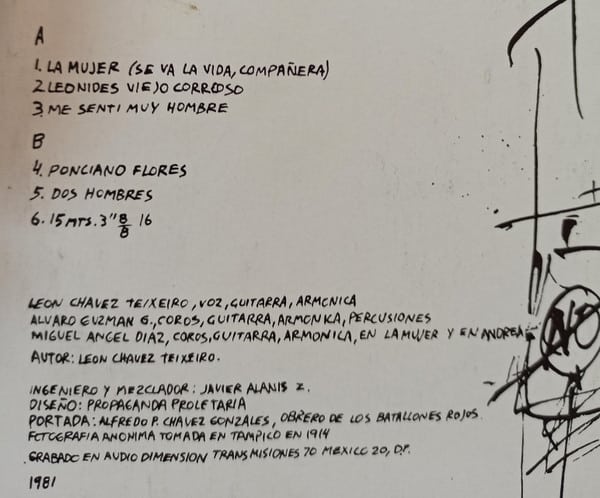 A
1. LA MUJER (SE VA LA VIDA, COMPAÑERA)
2 LEONIDES VIEJO CORRIOSO
3. ME SENTI MUY HOMBRE
B
4. PONCIANO FLORES
5. DOS HOMBRES
6. 15 MTS. 3" 8/8 16
LEON CHAVEZ TEIXEIRO, VOZ, GUITARRA, ARMONICA
ALVARO GUZMAN G., COROS, GUITARRA, ARMONICA, PERCUSIONES
MIGUEL ANGEL DIAZ, COROS, GUITARRA, ARMONICA, EN LA MUJER Y EN ANDREA
AUTOR: LEON CHAVEZ TEIXEIRO.
INGENIERO Y MEZCLADOR: JAVIER ALANIS Z.
DISEÑO: PROPAGANDA PROLETARIA
PORTADA: ALFREDO P. CHAVEZ GONZALES, OBRERO DE LOS BATALLONES ROJOS
FOTOGRAFIA ANONIMA TOMADA EN TAMPICO EN 1914
GRABADO EN AUDIO DIMENSION TRANSMISIONES 70 MEXICO 20, D.F.
1981